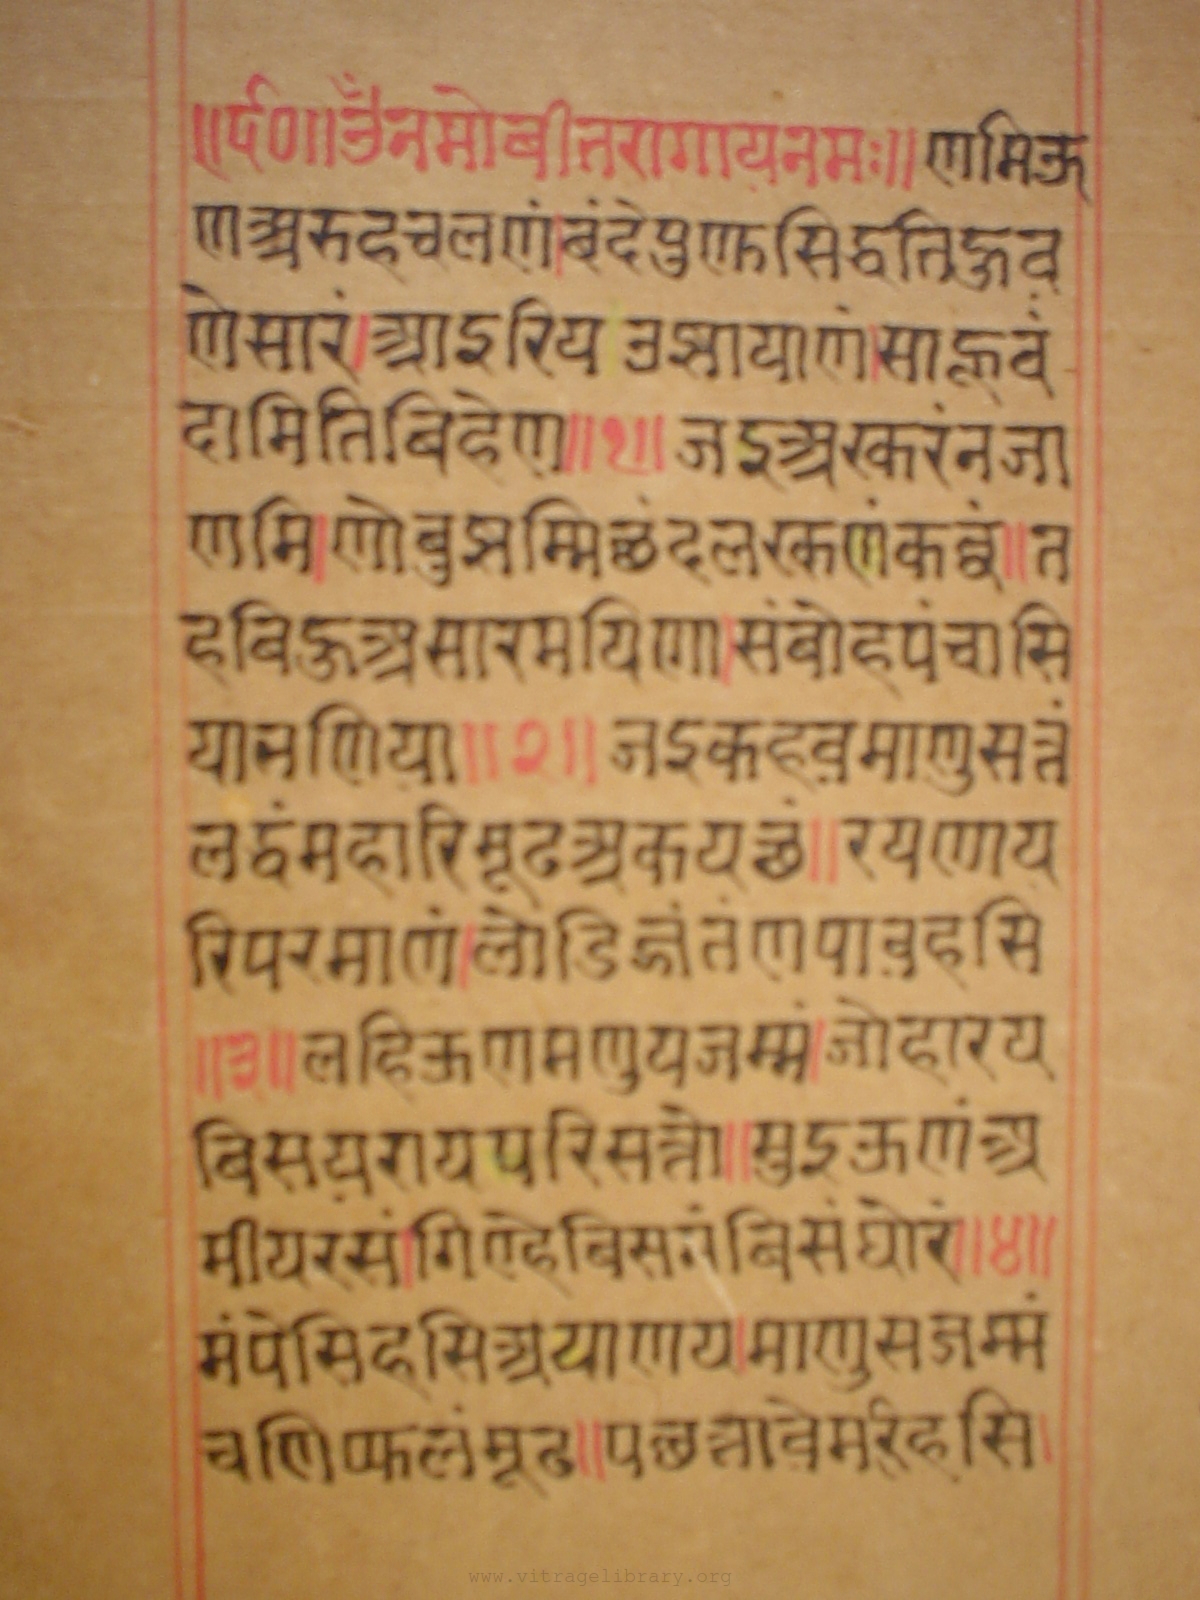 ॥र्द०॥ॐनमोवीतरागायनमः॥णमिऊ
णअरुहचलणं।वंदेपुणसिद्धतिहुव
णेसारं।आइरियउझायाणं।साहूवं
दामितिविहेण॥१॥जइअरकरंनजा
णमि।णोवुझम्मिछंदलरकणंकव्वं॥त
हविहुअसारमयिणा।संवोहपंचासि
याभणिया॥२॥जइकहवमाणुसत्तं
लद्धंमहारिमूढअकयछं॥रयणाय
रिपरमाणं।लोडिज्जंतंणपावहसि
॥३॥लहिऊणमणुयजम्मं।जोहारय
विसयरायपरिसत्तो॥मुइऊणंअ
मीयरसं।गिण्हेविसमंविसंघोरं॥४॥
मंपेसिहसिअयाणय।माणुसजम्मं
चणिप्फलंमूढ॥पछत्तावेमरेहसि।
www.vitragelibrary.org